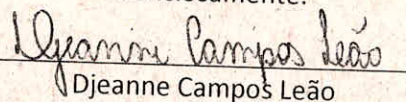 Djeanne Campos Leão
Djeanne Campos Leão